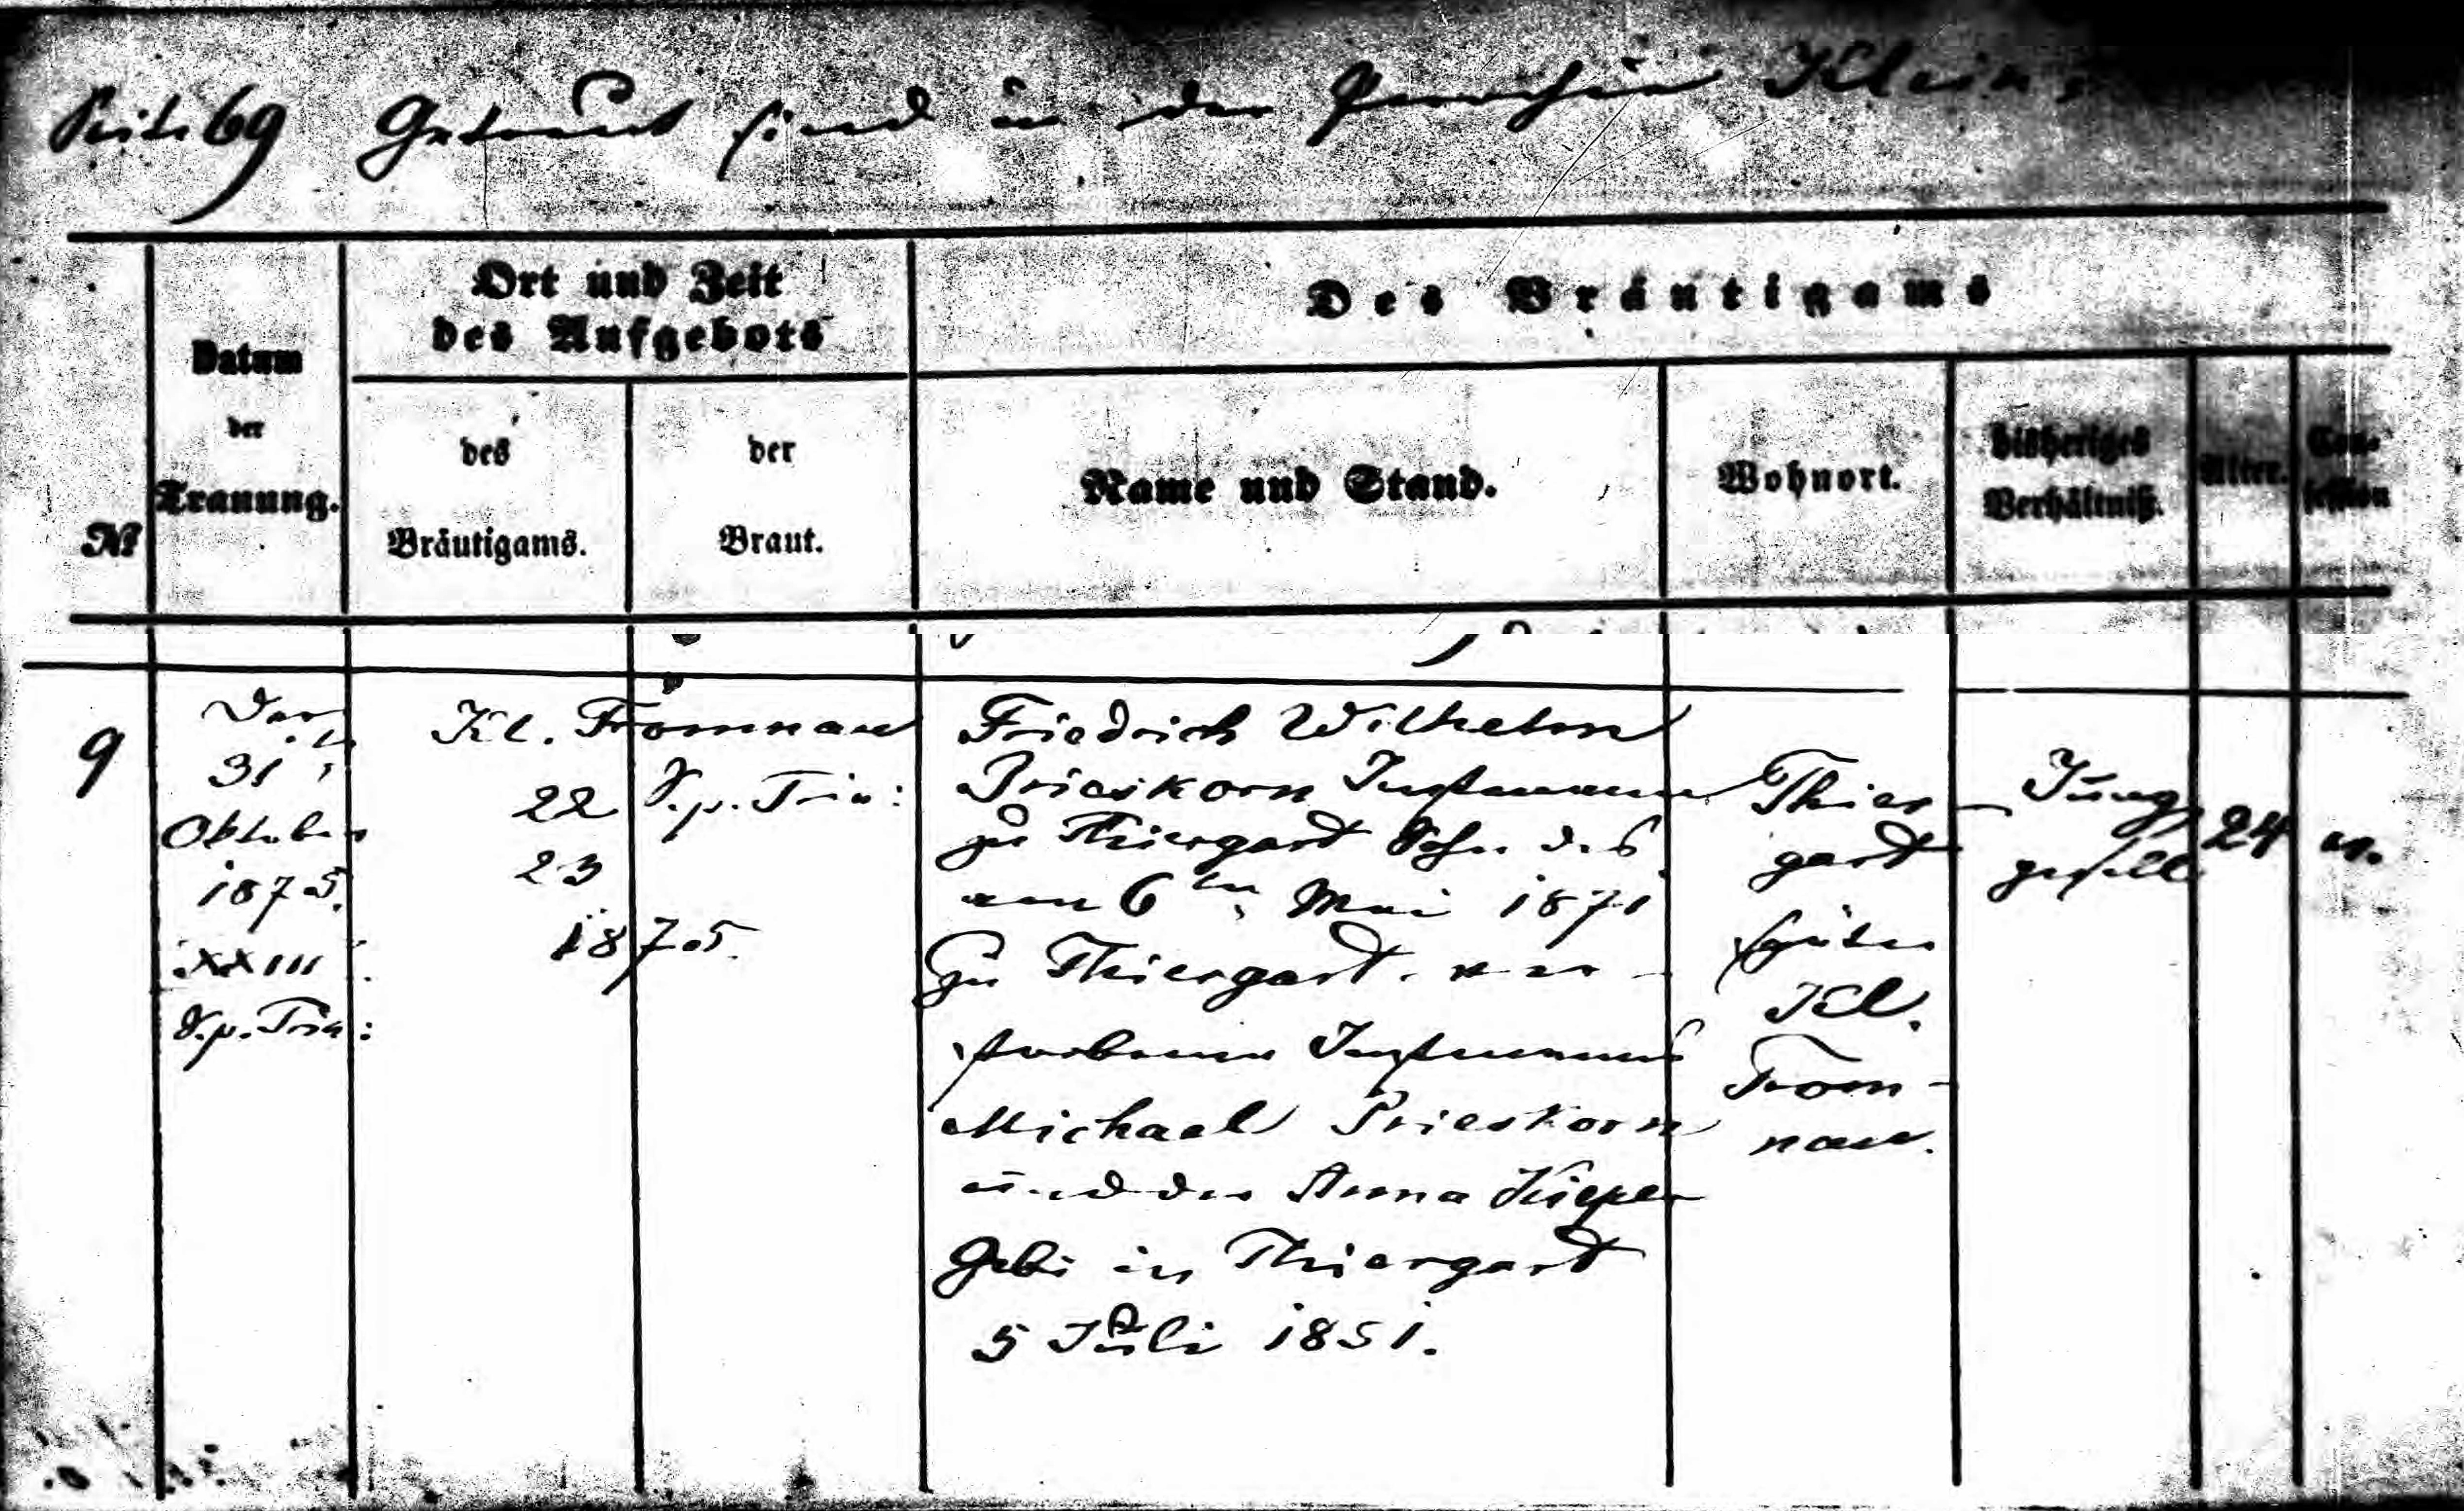 Seite 69 Getraut sind in der Parochie Klein
Ort und Zeit
des Aufgebots
Des Bräutigams
Datum
der
Trauung.
№
des
Bräutigams.
der
Braut.
Name und Stand.
Wohnort.
bisheriges
Verhältniß.
Alter.
Con-
fession
9
Der
31t
Oktober
1875.
XXIII
S.p.Trin:
Kl. Tromnau
22 S.p.Trin:
23
1875.
Friedrich Wilhelm
Prieskorn Instmann
zu Thiergart Sohn des
am 6ten Mai 1871
zu Thiergart ver-
storbenen Instmanns
Michael Prieskorn
und der Anna Kieper
Geb: in Thiergart
5 Juli 1851.
Thier-
gart
später
Kl.
Trom-
nau.
Jung
gesell
24